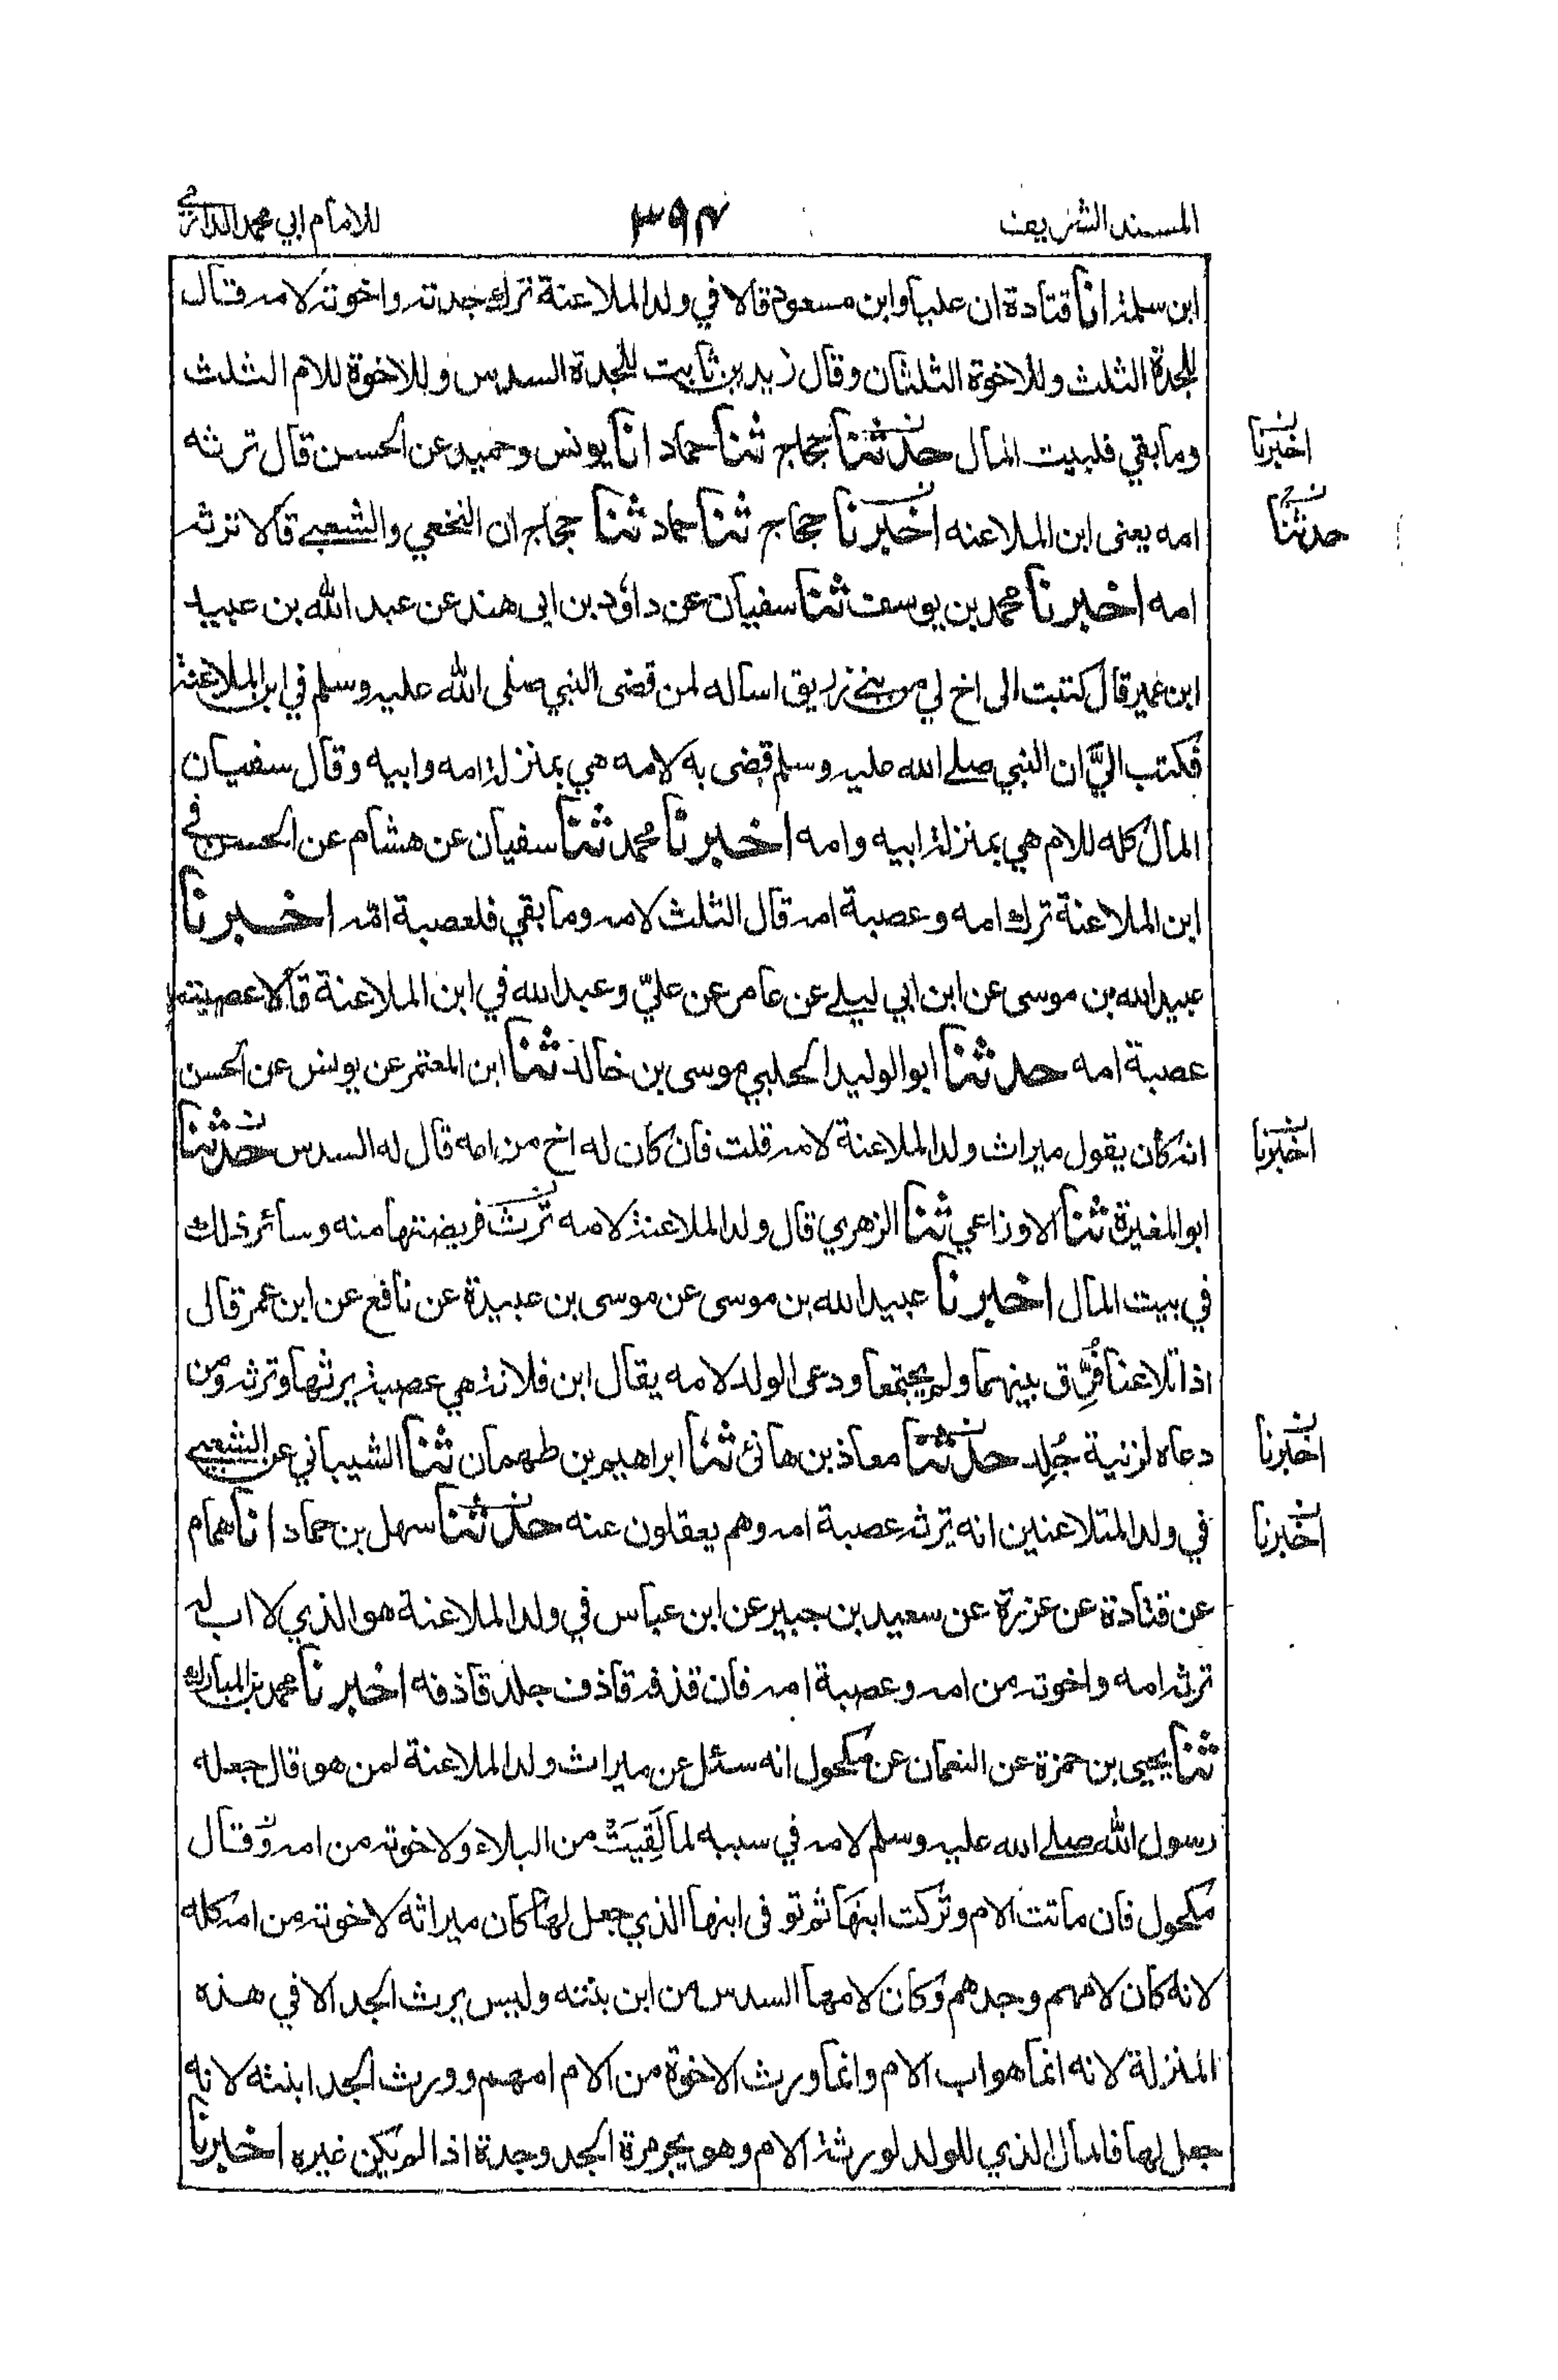 المسند الشريف ٣٩٤ للامام ابي محمد الدارمي
ابن سلمة انا قتادة ان عليا وابن مسعود قالا في ولد الملاعنة ترك جدته واخوته لامه قال
للجدة الثلث وللاخوة الثلثان وقال زيد بن ثابت للجدة السدس وللاخوة للام الثلث
وما بقي فلبيت المال حدثنا حجاج ثنا حماد انا يونس وحميد عن الحسن قال ترثه
اخبرنا
امه يعنى ابن الملاعنه اخبرنا حجاج ثنا حماد ثنا حجاج ان النخعي والشعبي قالا ترثه
حدثنا
امه اخبرنا محمد بن يوسف ثنا سفيان عن داؤد بن ابى هند عن عبد الله بن عبيد
ابن عمير قال كتبت الى اخ لي من بني زريق اساله لمن قضى النبي صلى الله عليه وسلم في ابن الملاعنة
فكتب اليّ ان النبي صلے الله عليه وسلم قضى به لامه هي بمنزلة امه وابيه وقال سفيان
المال كله للام هي بمنزلة ابيه وامه اخبرنا محمد ثنا سفيان عن هشام عن الحسن في
ابن الملاعنة ترك امه وعصبة امه قال الثلث لامه وما بقي فلعصبة امه اخبرنا
عبيد الله بن موسى عن ابن ابي ليلے عن عامر عن عليّ وعبد الله في ابن الملاعنة قالا عصبته
عصبة امه حدثنا ابو الوليد الحلبي موسى بن خالد ثنا ابن المعتمر عن يونس عن الحسن
انه كان يقول ميراث ولد الملاعنة لامه قلت فان كان له اخ من امه قال له السدس حدثنا
اخبرنا
ابو المغيرة ثنا الاوزاعي ثنا الزهري قال ولد الملاعنة لامه ترث فريضتها منه وسائر ذلك
في بيت المال اخبرنا عبيد الله بن موسى عن موسى بن عبيدة عن نافع عن ابن عمر قال
اذا تلاعنا فُرِّق بينهما ولم يجتمعا ودعى الولد لامه يقال ابن فلانة هي عصبة يرثها وترثه ومن
دعاه لزنية جُلِد حدثنا معاذ بن هانئ ثنا ابراهيم بن طهمان ثنا الشيباني عن الشعبي
اخبرنا
في ولد المتلاعنين انه يرثه عصبة امه وهم يعقلون عنه حدثنا سهل بن حماد انا همام
اخبرنا
عن قتادة عن عزرة عن سعيد بن جبير عن ابن عباس في ولد الملاعنة هو الذي لا اب له
ترثه امه واخوته من امه وعصبة امه فان قذفه قاذف جلد قاذفه اخبرنا محمد بن المبارك
ثنا يحيى بن حمزة عن النعمان عن مكحول انه سئل عن ميراث ولد الملاعنة لمن هو قال جعله
رسول الله صلے الله عليه وسلم لامه في سببه لما لَقِيَتْ من البلاء ولاخوته من امه وقال
مكحول فان ماتت الام وتركت ابنها ثم توفى ابنها الذي جعل لها كان ميراثه لاخوته من امه كله
لانه كان لامهم وجدهم وكان لامها السدس من ابن بنته وليس يرث الجد الا في هذه
المنزلة لانه انما هو اب الام وانما ورث الاخوة من الام امهم وورث الجد ابنته لانه
جعل لها فالمال الذي للولد لورثة الام وهو يحرمه الجد وحدة اذا لم يكن غيره اخبرنا